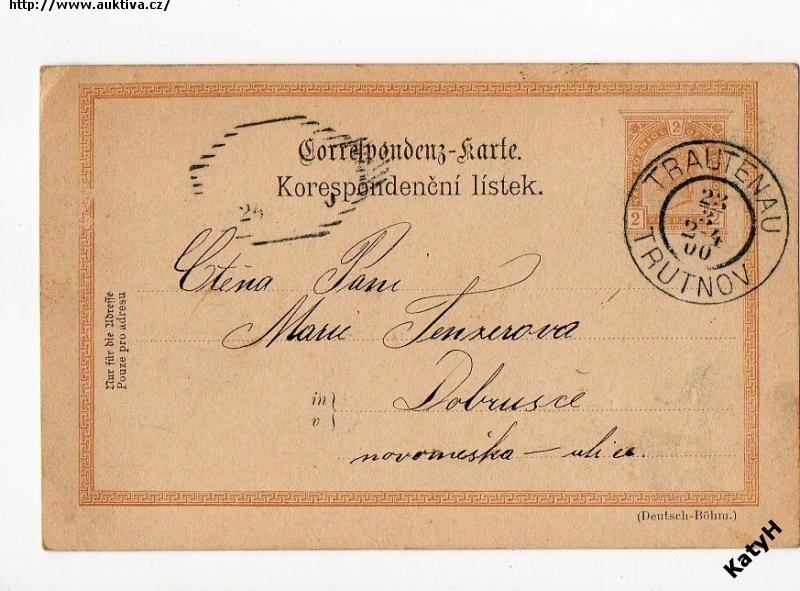 http://www.auktiva.cz/
Correspondenz-Karte.
Korespondenční lístek.
2
2
TRAUTENAU
23
3
2-4
00
TRUTNOV
24
Ctěna Paní
Marie Tenzerova
in
v
Dobrusče
novoměska - ulice.
Nur für die Adresse
Pouze pro adresu
(Deutsch-Böhm.)
KatyH